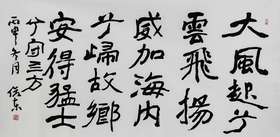 大風起兮
雲飛揚
威加海内
兮歸故鄉
安得猛士
兮守四方
丙申冬月